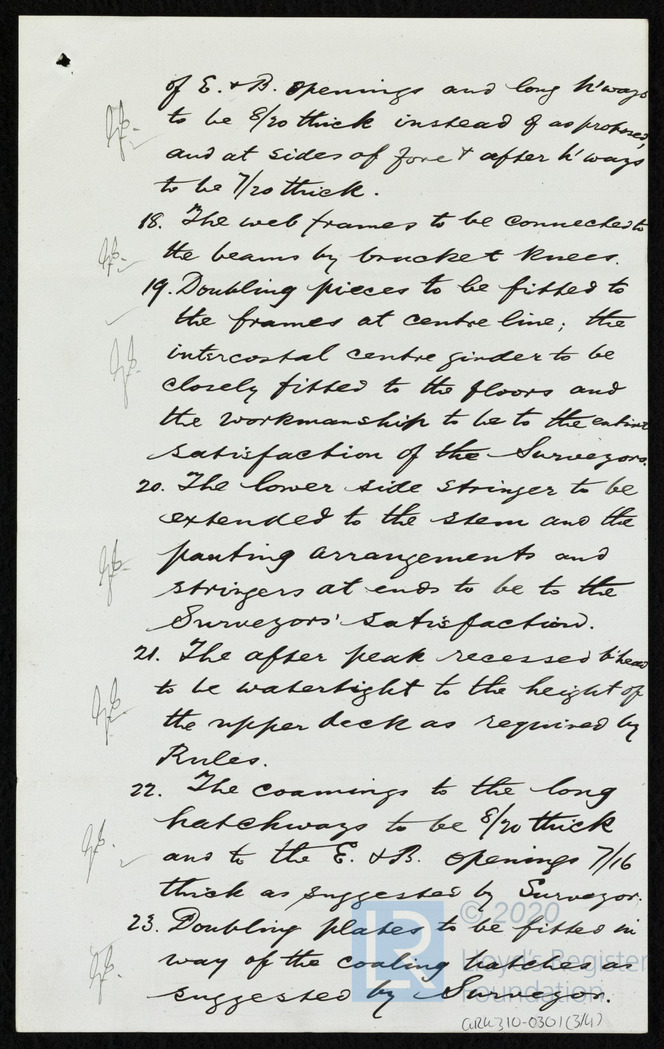 of E. & B. openings and long h'ways
to be 8/20 thick instead of as proposed,
and at sides of fore & after h'ways
to be 7/20 thick.
18. The web frames to be connected to
the beams by bracket knees.
19. Doubling pieces to be fitted to
the frames at centre line; the
intercostal centre girder to be
closely fitted to the floors and
the workmanship to be to the entire
satisfaction of the Surveyors.
20. The lower side stringer to be
extended to the stem and the
panting arrangements and
stringers at ends to be to the
Surveyors' satisfaction.
21. The after peak recessed b'head
to be watertight to the height of
the upper deck as required by
Rules.
22. The coamings to the long
hatchways to be 8/20 thick
and to the E. & B. openings 7/16
thick as suggested by Surveyor.
23. Doubling plates to be fitted in
way of the coaling hatches as
suggested by Surveyor.
LR
© 2020
Lloyd's Register
Foundation